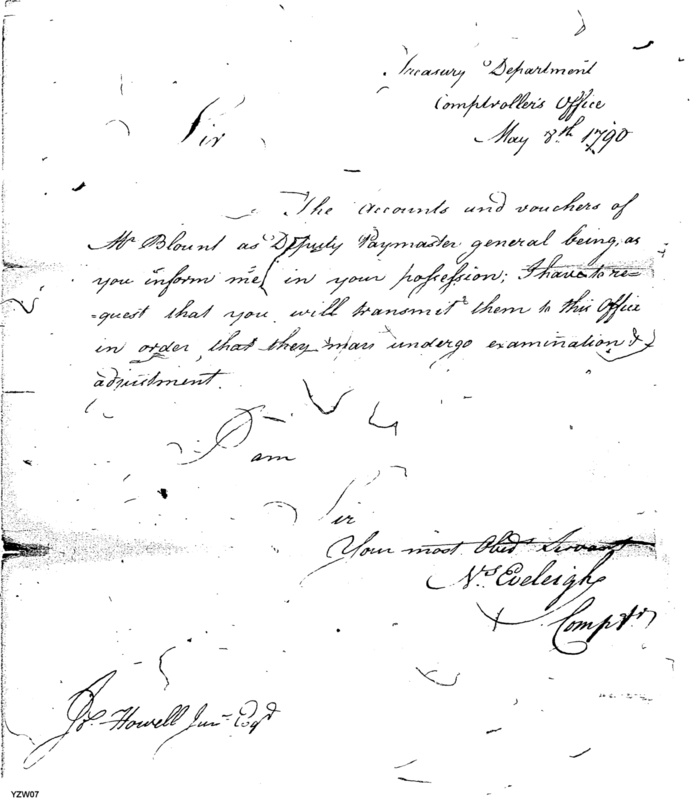 Treasury Department
Comptroller's Office
May 8th 1790
Sir
The Accounts and vouchers of
Mr Blount as Deputy Paymaster general being, as
you inform me, in your possession; I have to re=
=quest that you will transmit them to this Office
in order that they may undergo examination &
adjustment.
I am
Sir
Your most Obedt Servant
Ns Eveleigh
Comptr
Jos Howell Junr Esqr
YZW07